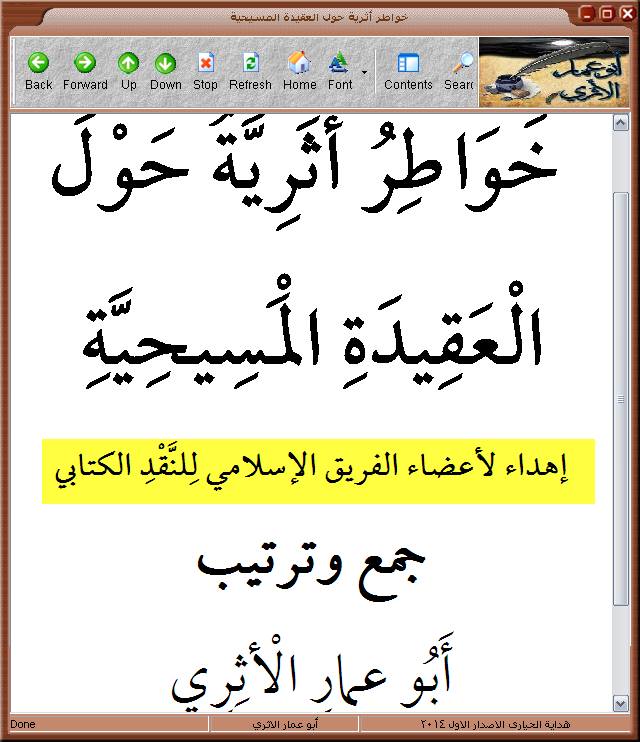 خواطر أثرية حول العقيدة المسيحية
Back Forward Up Down Stop Refresh Home Font Contents Searc
أبو عمار
الأثري
خَوَاطِرُ أَثَرِيَّةُ حَوْلَ
الْعَقِيدَةِ الْمَسِيحِيَّةِ
إهداء لأعضاء الفريق الإسلامي لِلنَّقْدِ الكتابي
جمع وترتيب
أَبُو عمارِ الْأثِرِي
Done أبو عمار الاثري هداية الحيارى الاصدار الاول ٢٠١٤